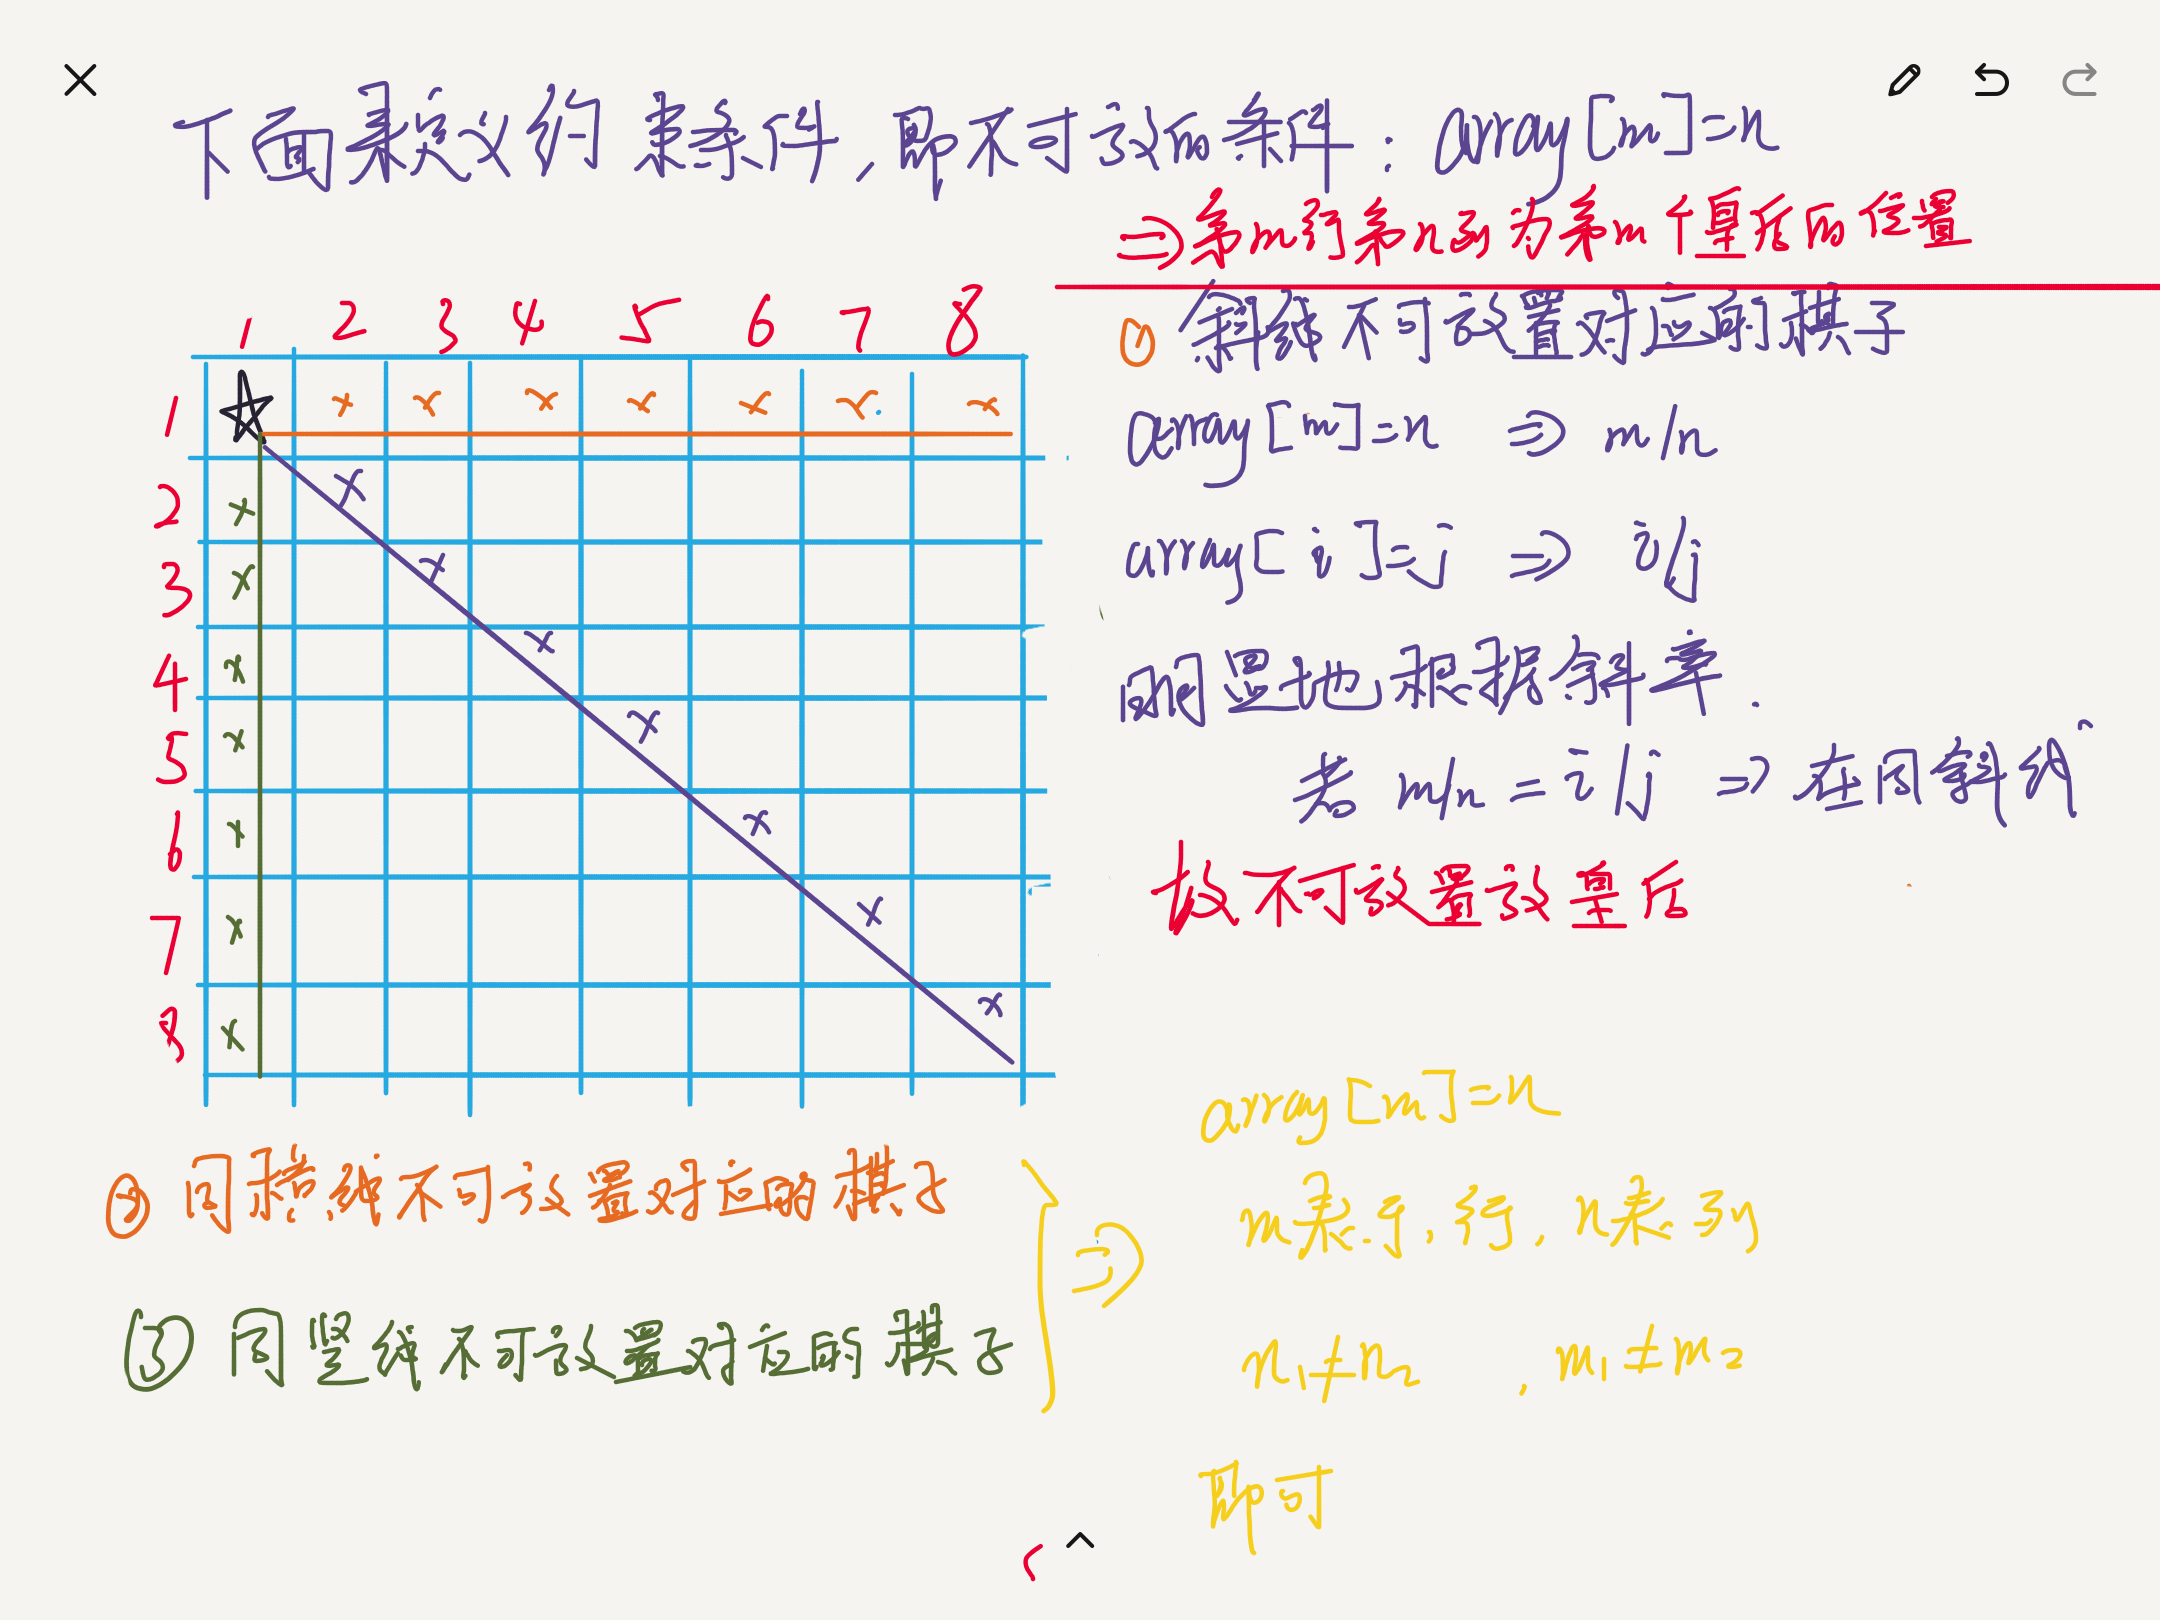 下面来定义约束条件,即不可放的条件: array[m]=n
⇒第m行第n列为第m个皇后的位置
1 2 3 4 5 6 7 8
1 ☆ x x x x x x x
2 x x
3 x x
4 x x
5 x x
6 x x
7 x x
8 x x
① 斜线不可放置对应的棋子
array[m]=n ⇒ m/n
array[i]=j ⇒ i/j
明显地根据斜率.
若 m/n = i/j ⇒ 在同斜线
故不可放置放皇后
② 同横线不可放置对应的棋子
③ 同竖线不可放置对应的棋子
⇒
array[m]=n
m表示行, n表列
n₁≠n₂ , m₁≠m₂
即可